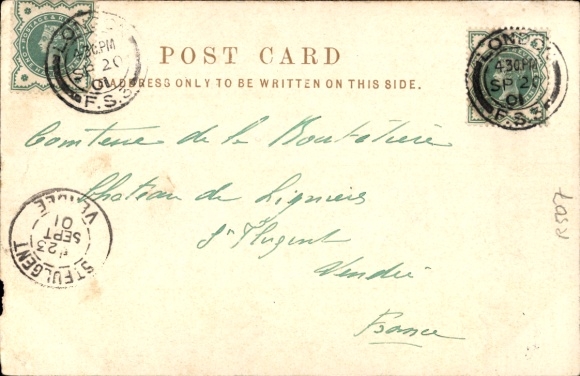 POST CARD
ADDRESS ONLY TO BE WRITTEN ON THIS SIDE.
LONDON
4.30PM
SP 20
01
F.S.
LONDON
4.30PM
SP 20
01
F.S.
Comtesse de la
Chateau de Ligniers
St Fulgent
Vendée
France
ST FULGENT
23
SEPT
01
VENDEE